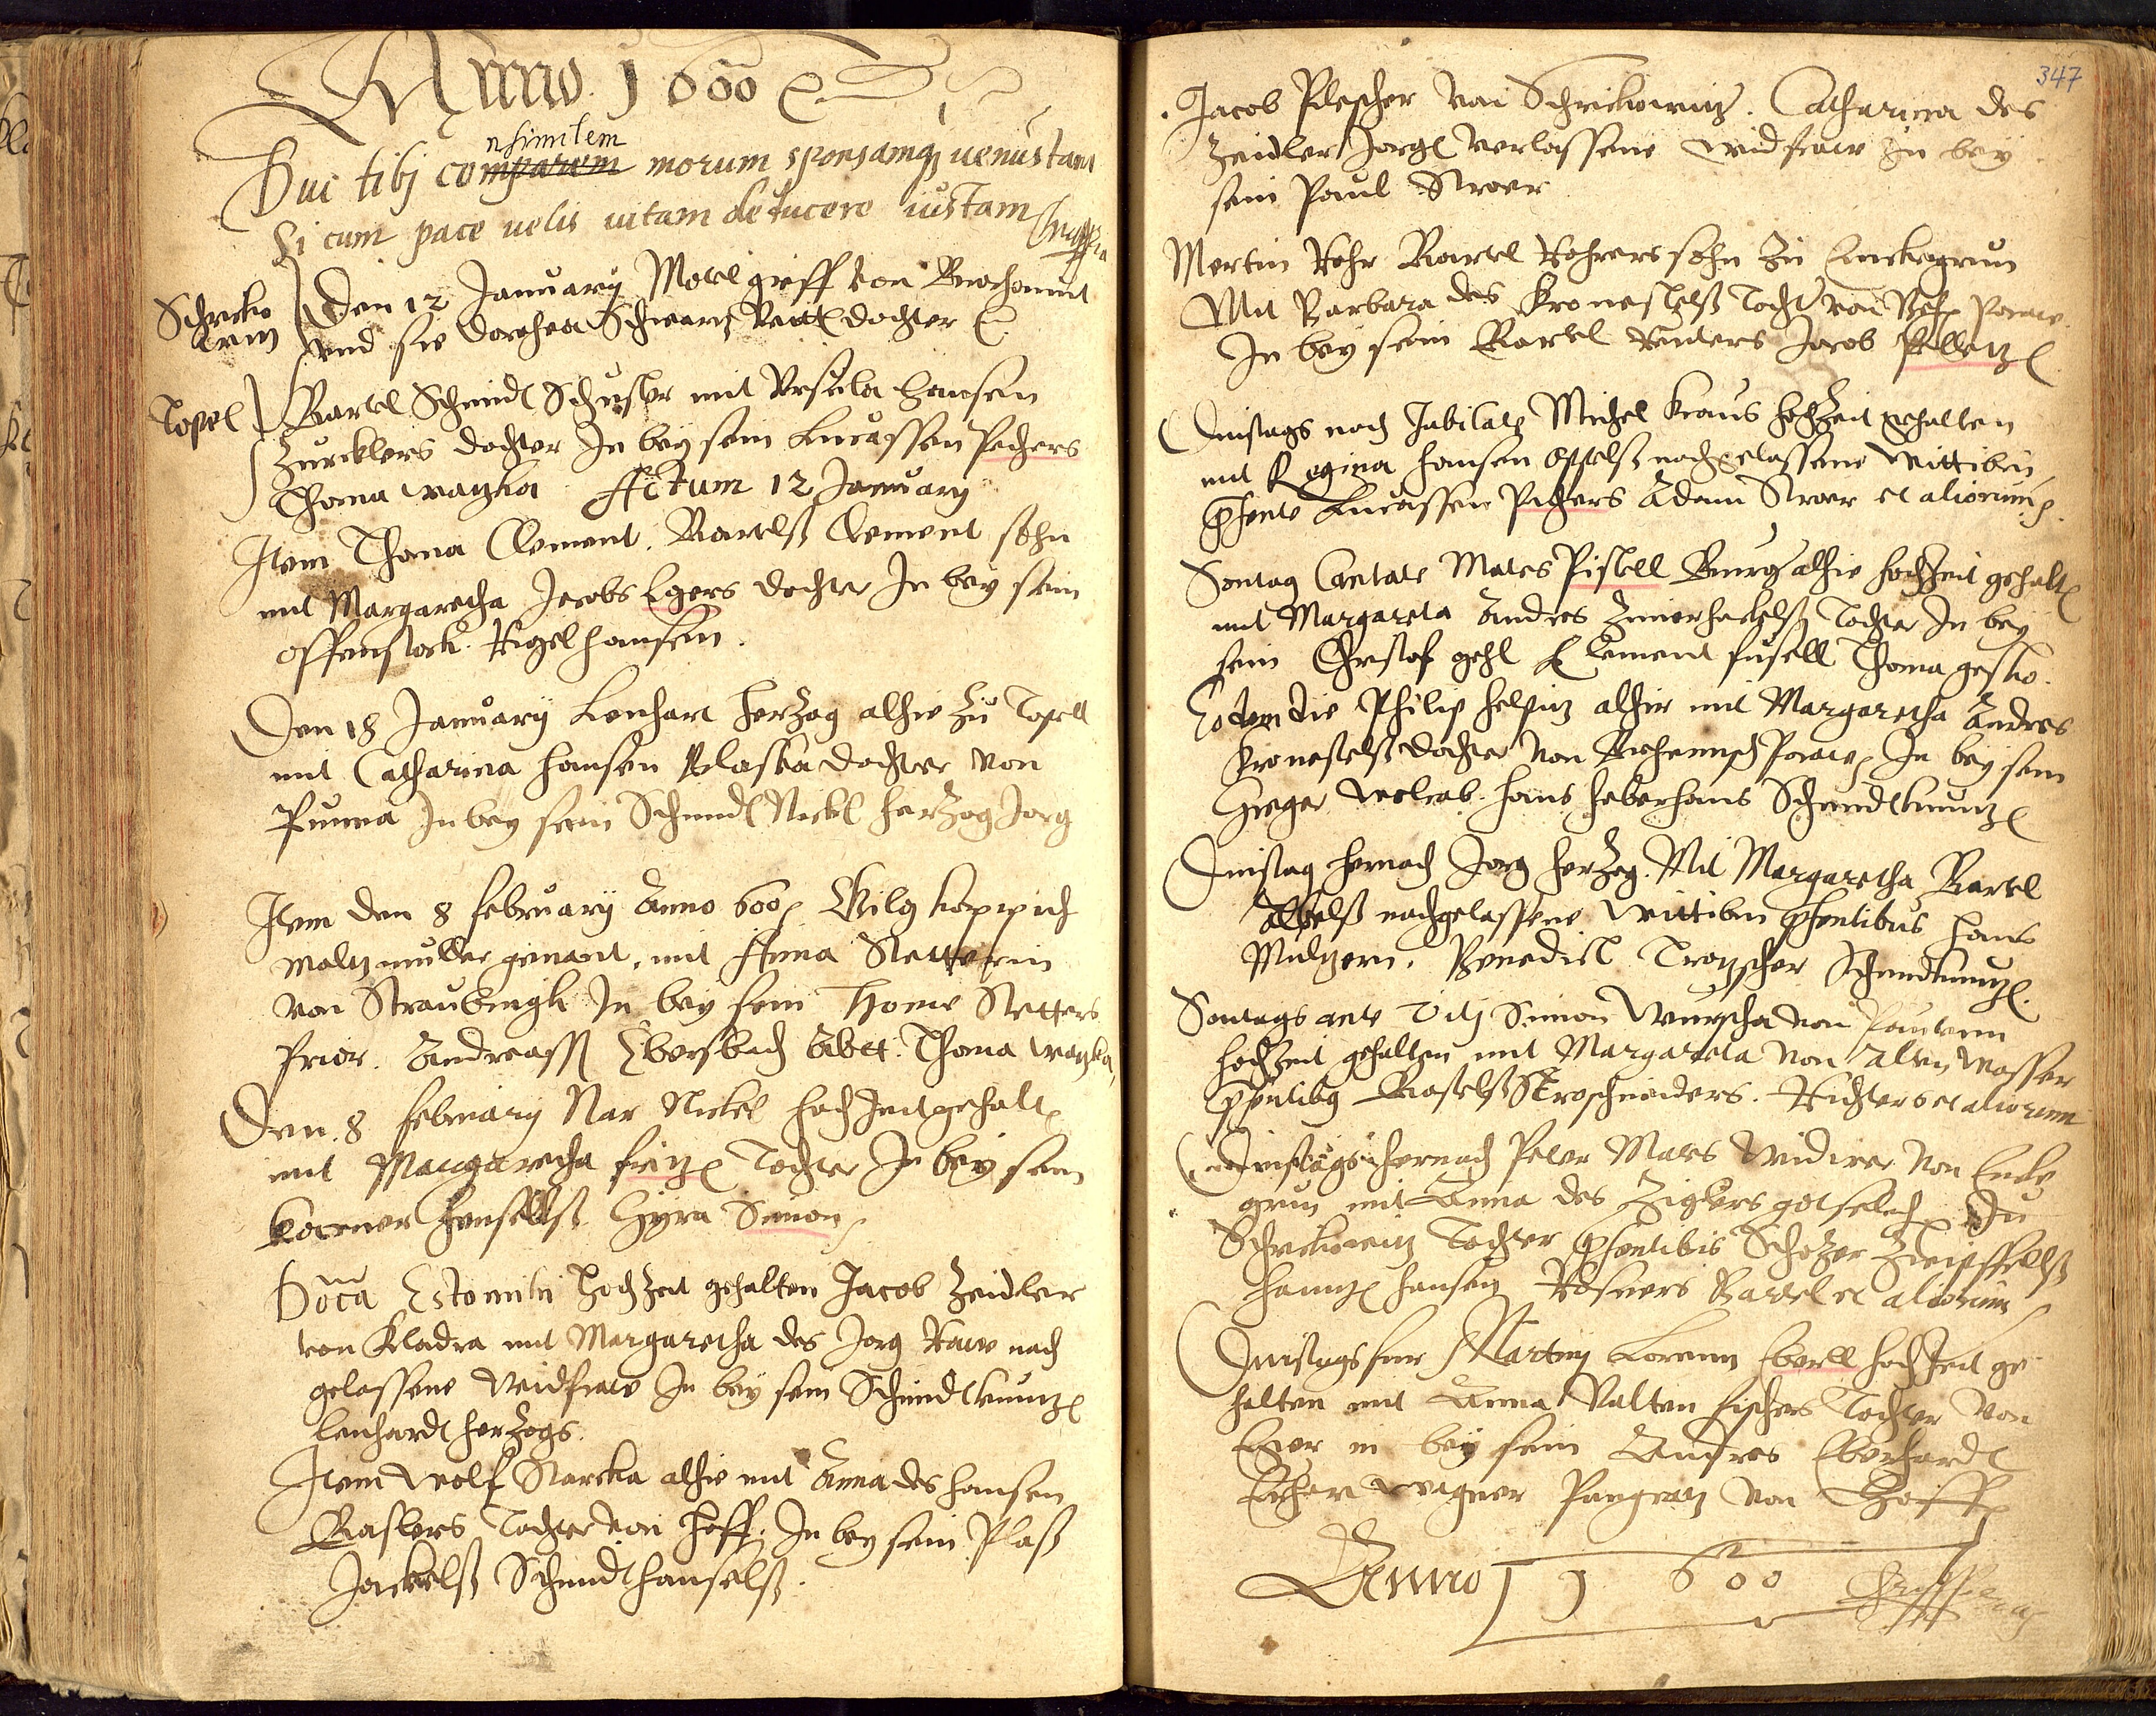 Anno 1600
nsimilem
Duc tibj comparem morum sponsamq uenustam
Si cum pace uelis uitam deducere iustam
Schecko
witz
Den 12 January Motel greff von
vnd sie Dorothea Schwartz Veitl dochter
Topel
Bartel Schmidt Schuster mit Vrsula Hansen
Zurcklers dochter In bey sein Lucassen Pechers
Thoma watzka Actum 12 January
Item Thoma Clement. Bartelß Clement sohn
mit Margaretha Jacobs Egers dochter In bey sein
offenstock. Rigelhansen.
Den 18 January Lenhart Herzog alhie zu Topell
mit Catharina Hansen Blaska dochter von
Punna In bey sein Schmidt Nickl Herzog Jorg
Item den 8 february Anno 600 Gilg koppich
Maltzmuller genant, mit Anna Stetterin
von Straubingk In bey sein Thome Stetters
Prior. Andreasß Ebersbach Abbt. Thoma watzka
Den 8 february Nar Nickel hochzeit gehalt
mit Margaretha fritz Tochter In bey sein
korner Henselß Hyra Simon
Doca Estomihi Hochzeit gehalten Jacob Zeidler
von Kladra mit Margaretha des Jorg Raw nach
gelassene Widfraw In bey sein Schmidt kuntz
Lenhardt Herzogs
Item Wolf Starcka alhie mit Anna des Hansen
Baslers Tochter von Hoff. In bey sein Plaß
Jackelß Schmidt Hanselß.
347
Jacob Plescher von Schrickowitz. Catharina des
Zeidler Jorgl verlassene widfraw In bey
sein Paul Stroer
Mertin Rohr Bartel Rohrers sohn zu Enckegrun
Mit Barbara des Kronestelß Tocht von
In bey sein Bartel Reuters Jacob Pelletz
Dinstags nach Jubilate Michel Kraus hochzeit gehalten
mit Regina Hansen Opfelß nachgelassene Wittibin
psente Lucassen Pechers Adam Stroer et aliorum
Sontag Cantate Mates Pistell Burg alhie hochzeit gehalt
mit Margareta Andres Zimerhackelß Tochter In bey
sein Christof gehl Clement fusell Thoma gesko.
Eodem die Philip Helpitz alhir mit Margaretha Andres
Kronestelß dochter von Behemisch In bey sein
Greger Wolrab. Hans Haberhans Schmidt kuntz
Dinstag hernach Jorg Herzog. Mit Margaretha Bartel
nachgelassene Wittiben psentibus Hans
Multzern. Benedict Trotzscher Schmidkuntz.
Sontags ante Vitj Simon Wurscha von
hochzeit gehalten mit Margareta von Altn Wasser
psentibq Stroschneiders. Richters et aliorum
Dinstags hernach Peter Mates Widirer von Encke
grun mit Anna des Ziglers gotselich Zu
Schrickowitz Tochter psentibis
Hansen Rosners Bartel et aliorum
Dinstags fur Martiny Lorentz Eberll hochzeit ge
halten mit Anna Valten fischers Tochter von
Eger in bey sein Andres Eberhardt
wagner Pangratz von
Anno 1600